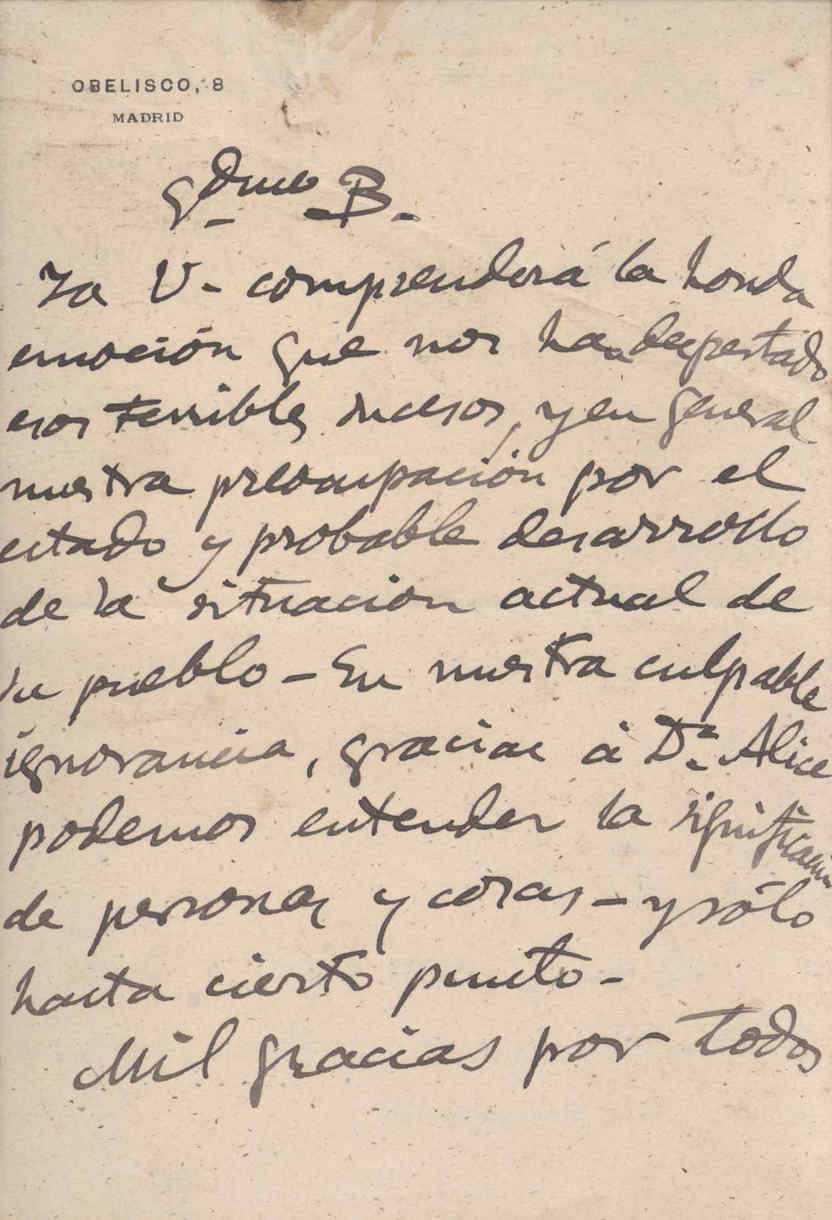 OBELISCO, 8
MADRID
B.
Ya V- comprenderá la honda
emoción que nos han despertado
esos terribles sucesos, y en general
nuestra preocupación por el
estado y probable desarrollo
de la situación actual de
su pueblo - En nuestra culpable
ignorancia, gracias á Dª. Alice
podemos entender la significación
de personas y cosas - y sólo
hasta cierto punto -
Mil gracias por todos